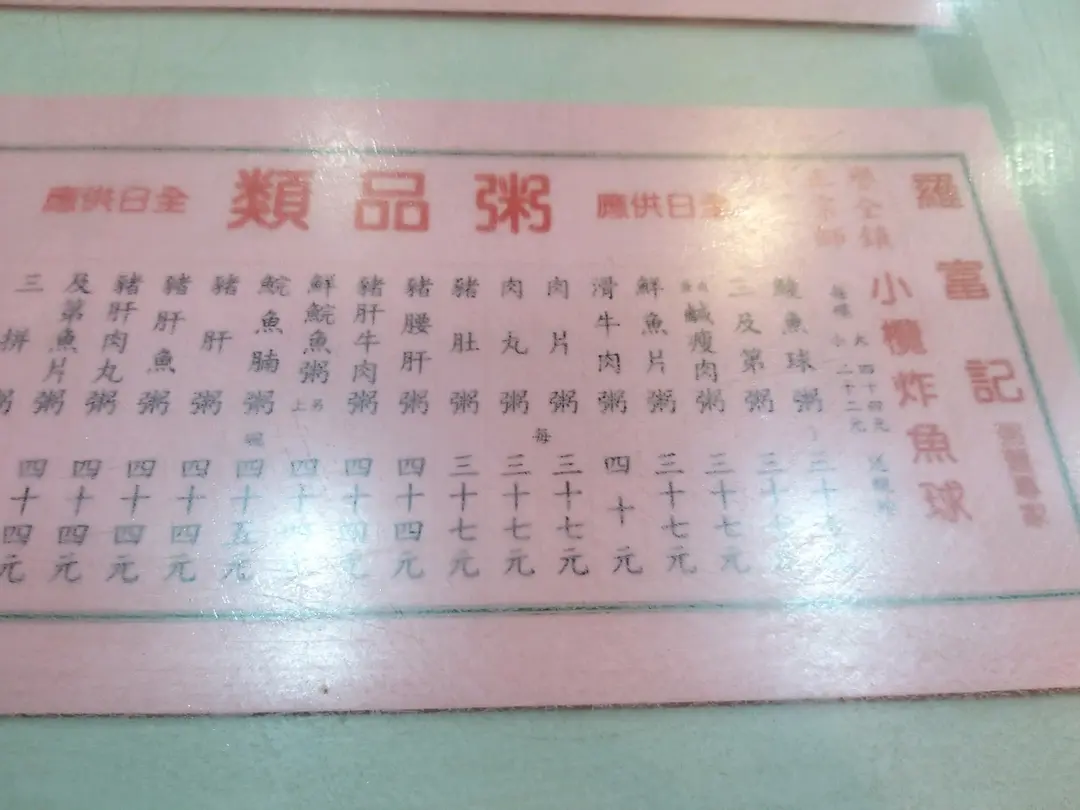 羅富記
粥麵專家
小欖炸魚球
全日供應
粥品類
全日供應
每碟 大 四十四元
小 二十二元
鯪魚球粥
三及第粥 三十七元
鹹瘦肉粥 三十七元
鮮魚片粥 三十七元
滑牛肉粥 四十元
肉片粥 三十七元
每
肉丸粥 三十七元
豬肚粥 三十七元
豬腰肝粥 四十四元
豬肝牛肉粥 四十四元
鮮鯇魚粥
鯇魚腩粥 四十五元
豬肝粥 四十四元
豬肝魚粥 四十四元
豬肝肉丸粥 四十四元
及第魚片粥 四十四元
三拼粥